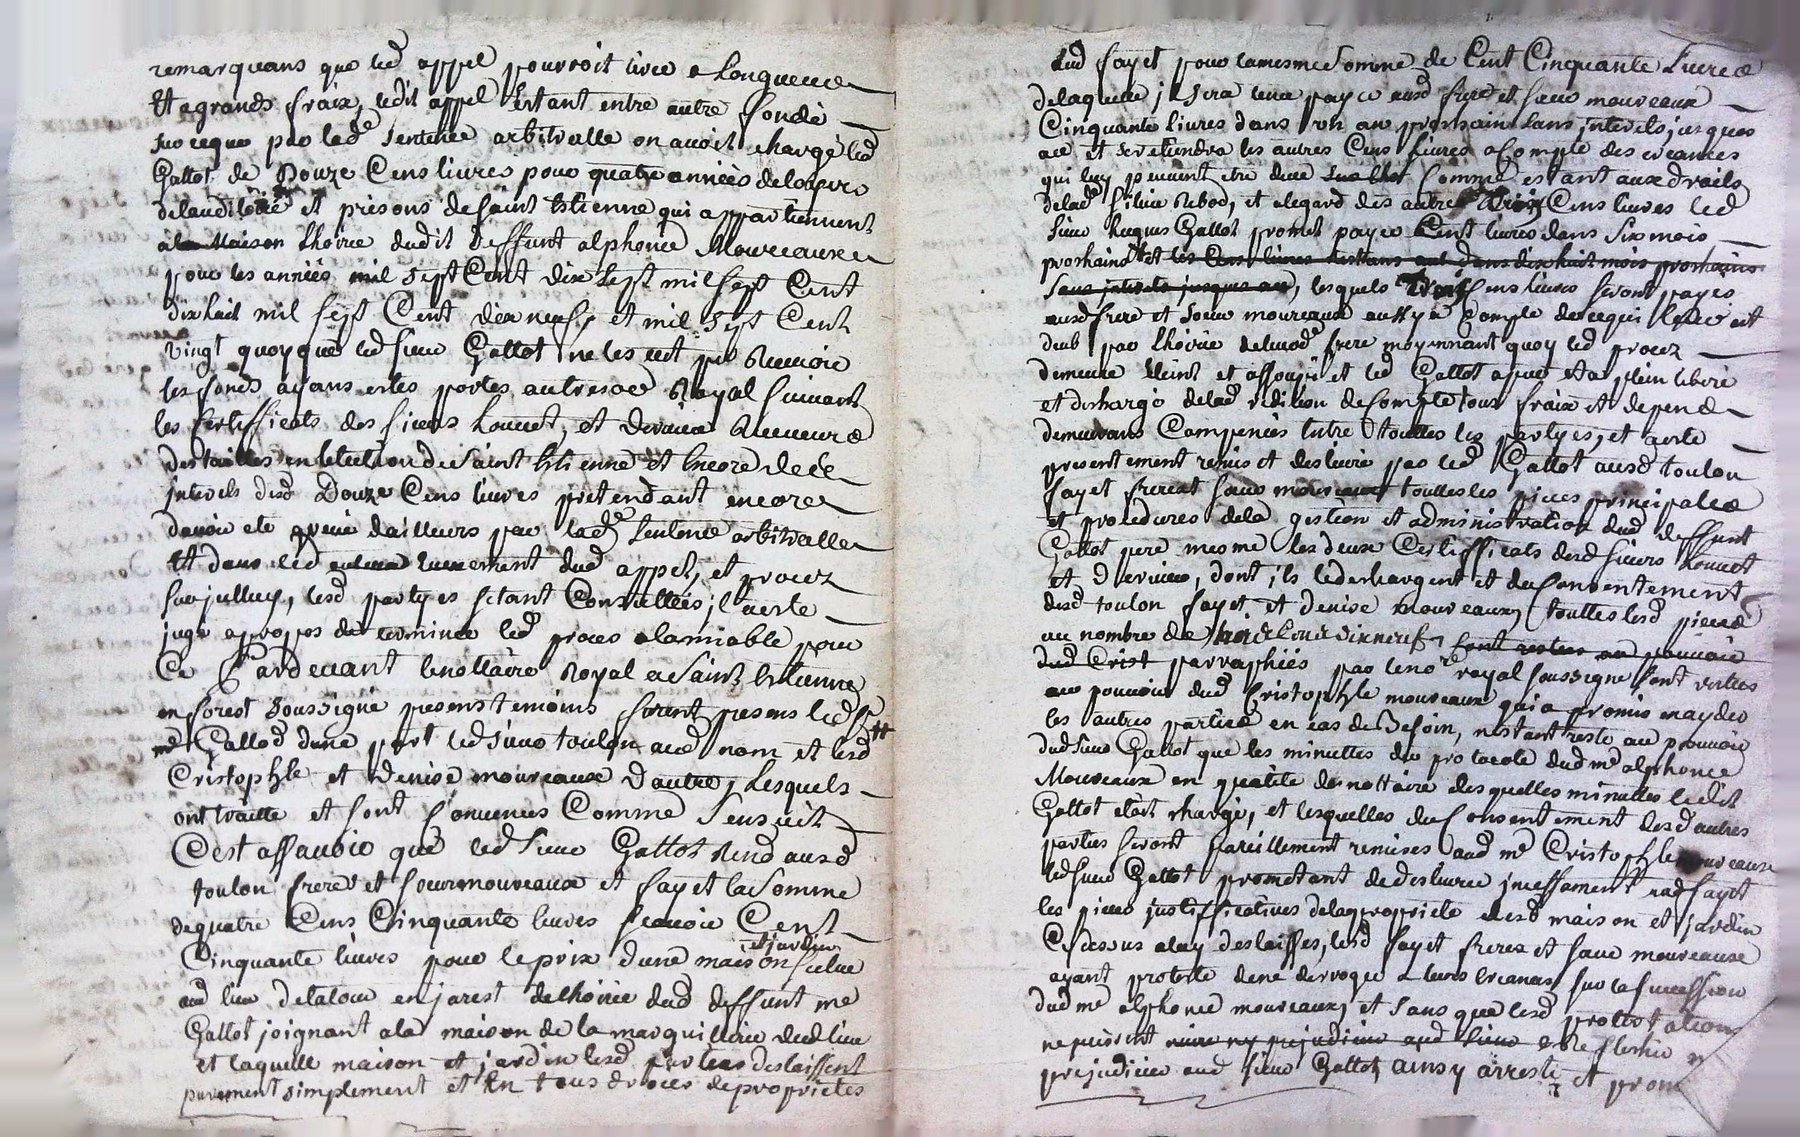 remarquans que led appel pourroit tirer a longueur
Et a grands fraix, ledit appel Estant entre autre fondé
sur ceque par lade sentence arbitralle on auoit chargé led
Gallot de Douze Cens liures pour quatre années deloyers
delauditoire et prisons de saint Estienne qui appartiennent
a la Maison Lhoirie dudit Deffunt alphonce Moureaux
pour les années mil sept Cent dix sept mil sept Cent
dix huit mil sept Cent dix neuf et mil sept Cent
vingt quoyque led sieur Gallot ne les eut pu Receuoir
les fonds ayans estes portes au tresor Royal suiuant
les Certifficats des sieurs Louuet, et Derieux Receueurs
des tailles en letection de Saint Estienne et Encore de ce
interests desd Douze Cens liures pretendant encore
dauoir ete greué dailleurs par lade sentence arbitralle
Et dans led euenement dud appel, et procez
sur jcelluy, lesd partyes setant Consultées, il a este
jugé apropos de terminer led proces alamiable pour
Ce Pardeuant le nottaire Royal a Saint Estienne
en forest soussigné presens temoins furent presens led sr
me Gallod dune part led sieur toulon aud nom et lesd
Cristophle et Denise moureaux Dautre, Lesquels
ont traitté et sont Conuenus Comme sensuit
Cest assauoir que led sieur Gallot Rend ausd
toulon frere et soeur moureaux et fayet la somme
dequatre Cens Cinquante liures scauoir Cent
et jardin
Cinquante liures pour le prix dune maison scitue
aud lieu delatour en jarest delhoirie dud deffunt me
Gallot joignant a la maison de la marguillerie dud lieu
et laquelle maison et jardin lesd parties deslaissent
purement simplement et En tous droits de proprietes
dud fayet pour la mesme somme de Cent Cinquante Liures
delaquelle il sera tenu payer ausd frere et soeur moureaux
Cinquante liures dans un an prochain sans interets jusques
ace et se retiendra les autres Cens liures a Compte des creances
qui luy peuuent etre deue Comme estant aux droits
delad, et alegard des autres trois Cens liures led
sieur hugues Gallot promet payer Cent liures dans six mois
prochains et les Cens liures restans dans dix huit mois prochains
sans interets jusques ace, lesquels trois Cens liures seront payes
ausd frere et soeur moureaux aussy a Compte de cequi leur est
deub par Lhoirie deleurd frere moyennant quoy led procez
demeure Eteint et assoupi et led Gallot a pur et a plein libere
et dechargé delad redition de Compte tous fraix et depend
demeurans Compencés Entre touttes les partyes, et a este
presentement remis et desliuré par led Gallot ausd toulon
fayet frere et soeur moureaux touttes les pieces principales
et procedures dela gestion et administration dud deffunt
Gallot pere mesme les deux Certifficats desd sieurs Louuet
et Derieux, dont ils led echargent et du Consentement
desd toulon fayet et denise moureaux, touttes lesd pieces
au nombre de sont restes au pouuoir
dud Crist parraphées par le nore royal soussigne sont restes
au pouuoir dud Cristophle moureaux qui a promis en ayder
les autres parties en cas de Besoin, nestant resté au pouuoir
dud sieur Gallot que les minuttes du protocole dud me alphonce
Moureaux en qualité de nottaire desquelles minuttes ledit
Gallot etoit chargé, et lesquelles du Consentement desd autres
parties seront pareillement remises aud me Cristophle moureaux
led sieur Gallot promettant de desliurer jncessament aud fayet
les pieces justifficatiues delapropriete desd maison et jardin
Cydessus a luy deslaisses, lesd fayet frere et soeur moureaux
ayant protesté dene derroger a leurs creances sur la succession
dud me alphonce moureaux, et sans que lesd protestations
ne puissent nuire ny prejudicier aud sieur
prejudicier aud sieur Gallot, ainsy arresté et prom